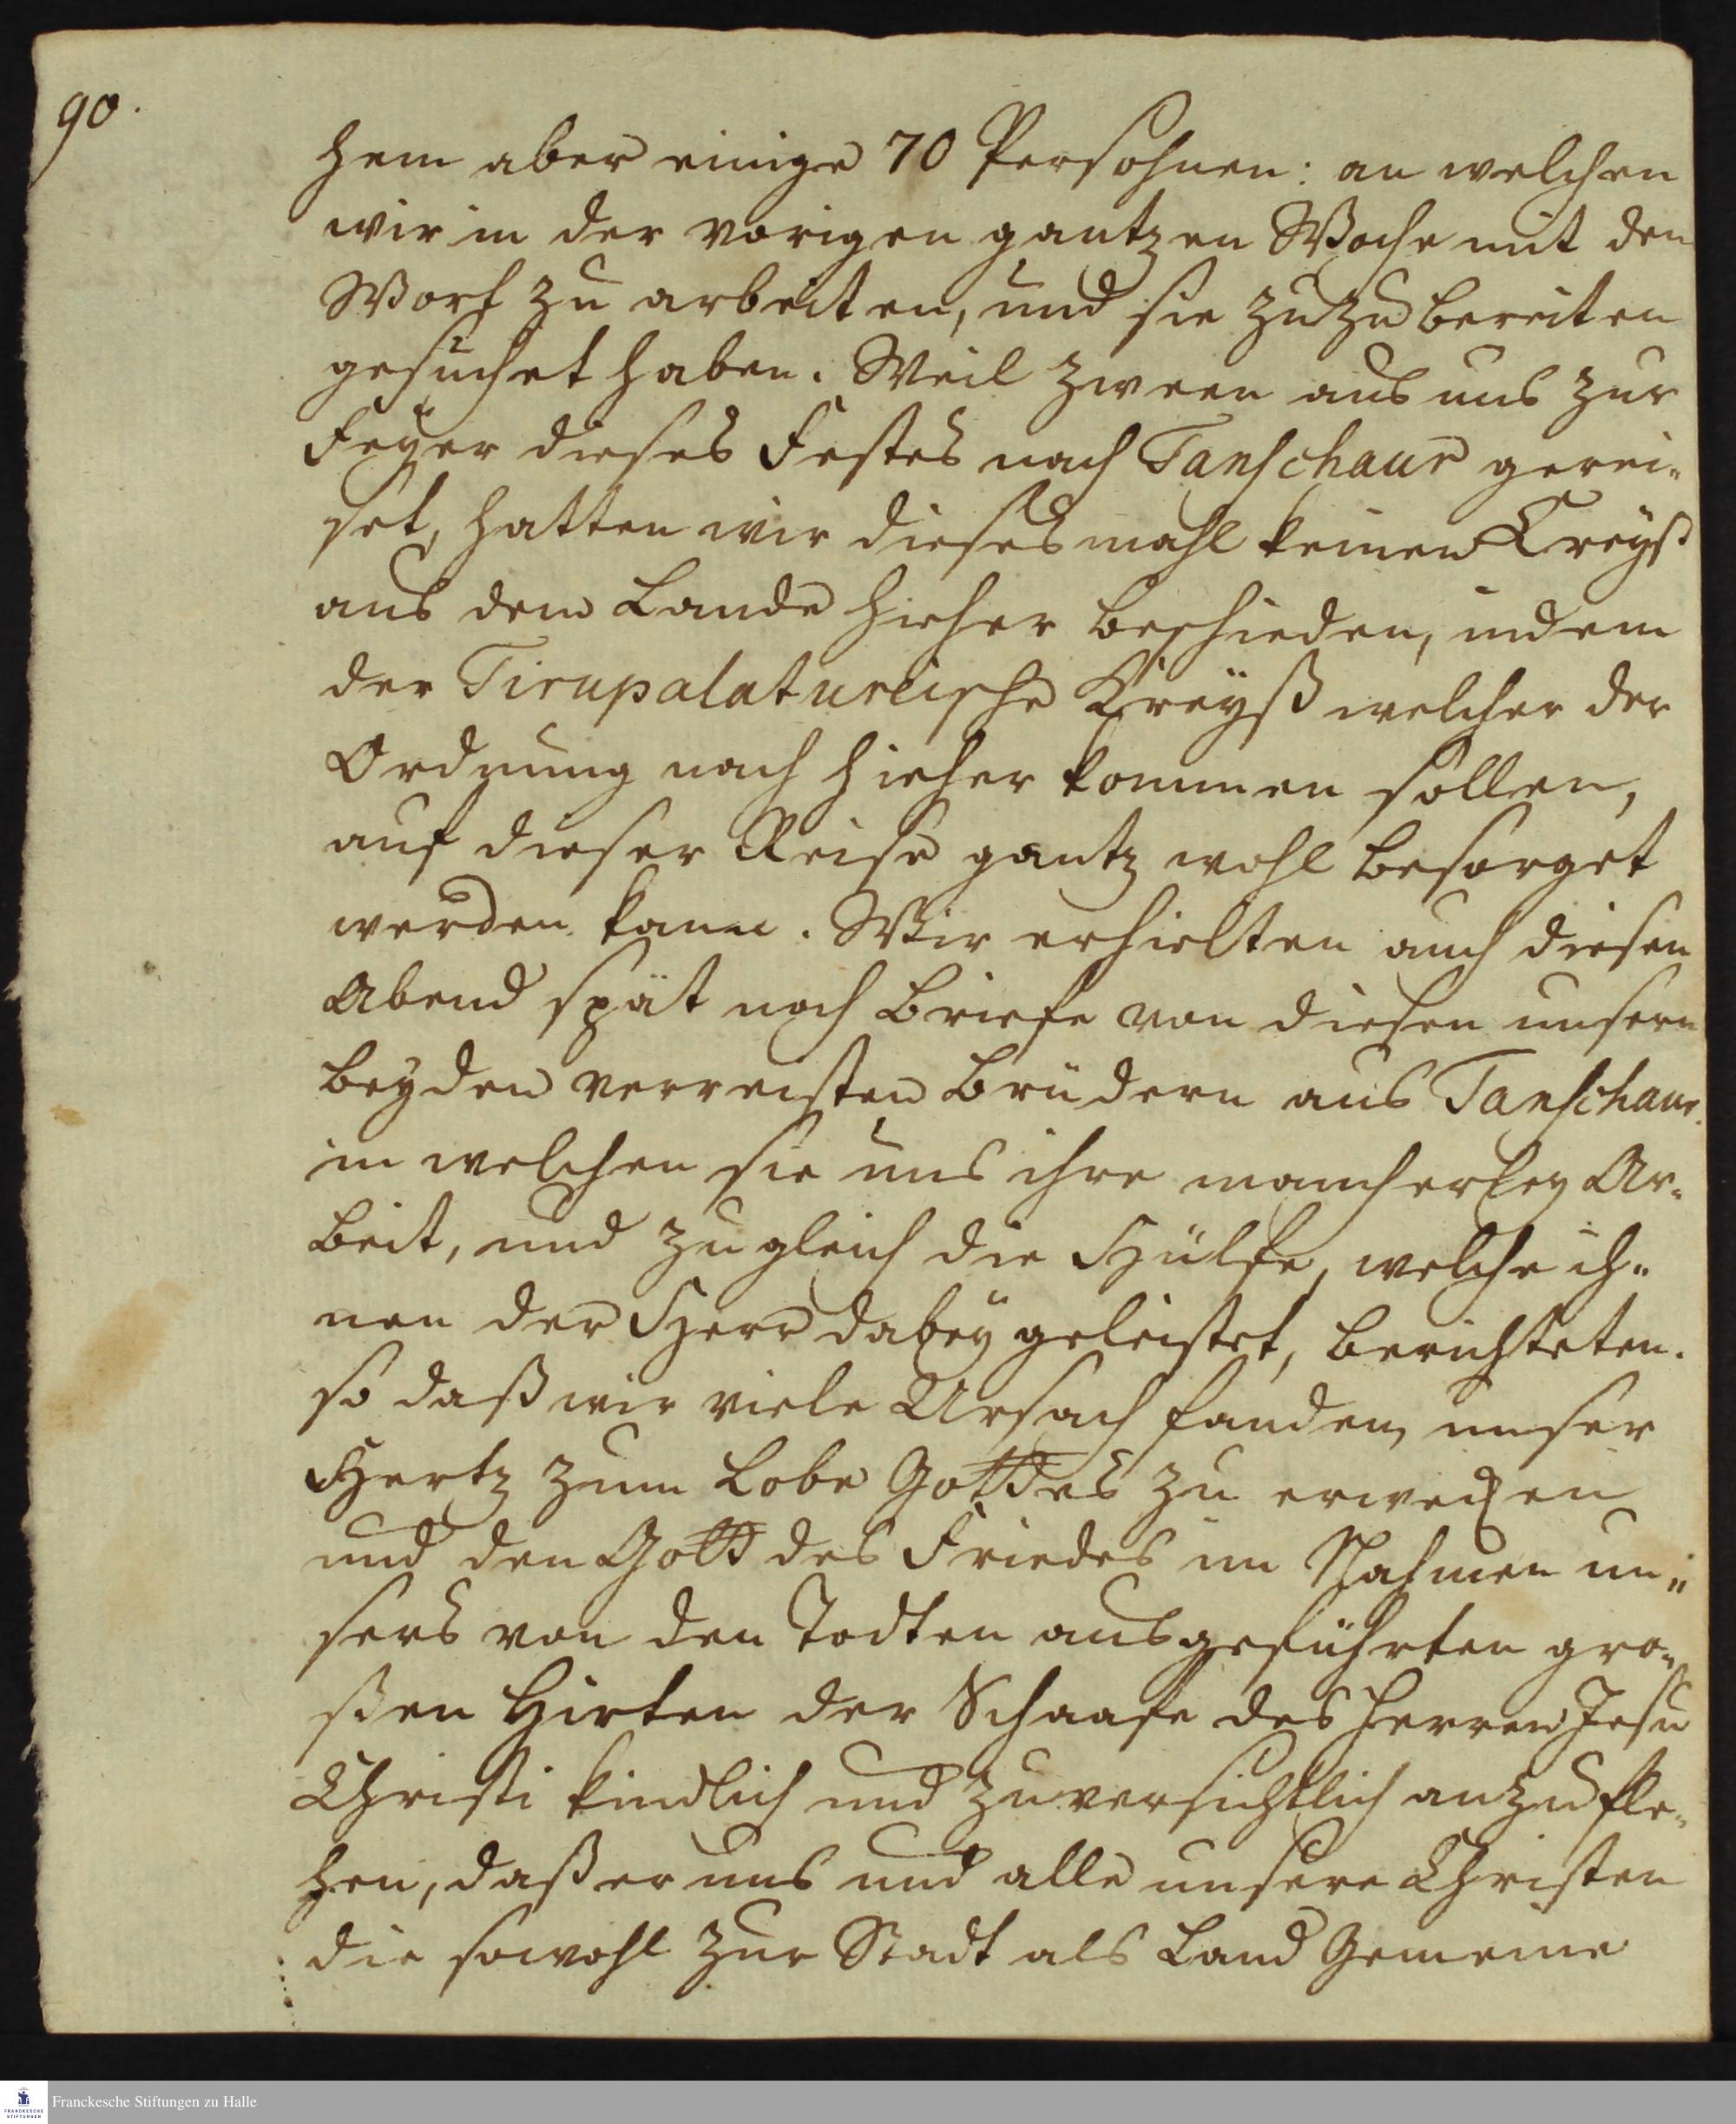 90.
hem aber einige 70 Persohnen: an welchen
wir in der vorigen gantzen Woche mit dem
Wort zu arbeiten, und sie zuzubereiten
gesuchet haben. Weil zween aus uns zur
Feyer dieses Festes nach Tanschaur gerei-
set, hatten wir dieses mahl keinen Creyß
aus dem Lande hieher beschieden, indem
der Tirupalatureische Kreyß welcher der
Ordnung nach hieher kommen sollen,
auf dieser Reise gantz wohl besorget
werden kann. Wir erhielten auch diesen
Abend spät noch Briefe von diesen unsern
beyden verreisten Brüdern aus Tanschaur.
in welchen sie uns ihre mancherley Ar-
beit, und zugleich die Hülfe, welche ih-
nen der Herr dabey geleistet, berichteten.
so daß wir viele Ursach fanden, unser
Hertz zum Lobe Gottes zu erwecken
und den Gott des Friedes im Nahmen un-
sers von den Todten ausgeführten gro-
ßen Hirten der Schaafe des Herren Jesu
Christi kindlich und zuversichtlich anzufle-
hen, daß er uns und alle unsere Christen
die sowohl zur Stadt als Land Gemeine
Franckesche Stiftungen zu Halle